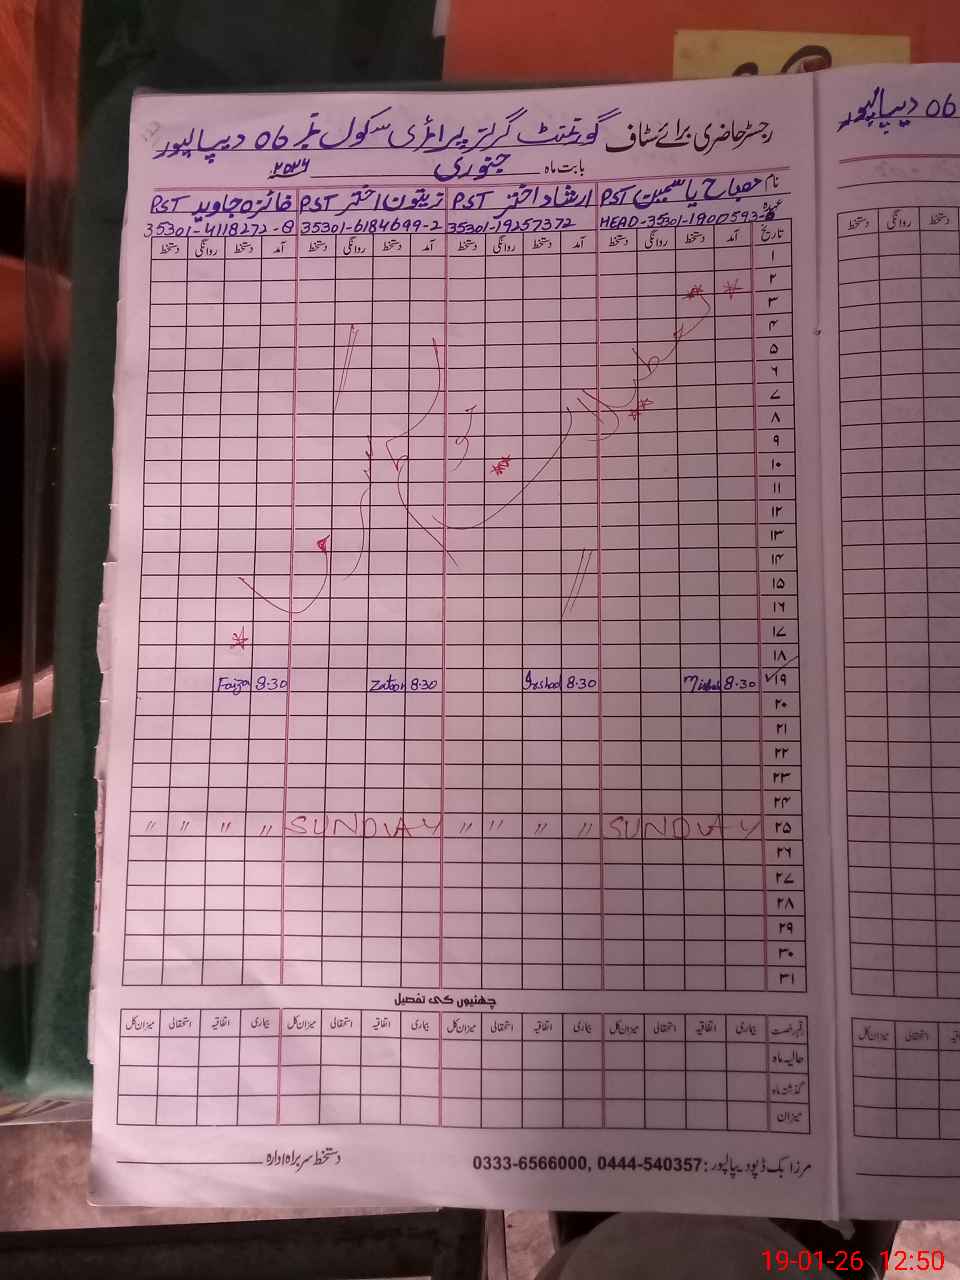 رجسٹر حاضری برائے سٹاف گورنمنٹ گرلز پرائمری سکول نمبر 06 دیپالپور
بابت ماہ جنوری ۲۰۲۶
نام مصباح یاسمین PST ارشاد اختر PST زیتون اختر PST فائزہ جاوید PST
عہدہ HEAD-35301-1900593-6 35301-19257372 35301-6184699-2 35301-4118272-0
تاریخ آمد دستخط روانگی دستخط آمد دستخط روانگی دستخط آمد دستخط روانگی دستخط آمد دستخط روانگی دستخط
۱
۲
۳
۴
۵
۶
۷
۸
۹
۱۰
۱۱
۱۲
۱۳
۱۴
۱۵
۱۶
۱۷
۱۸
۱۹ 8.30 8.30 Irshad 8.30 Zatoon 8.30 Faiza
۲۰
۲۱
۲۲
۲۳
۲۴
۲۵ SUNDAY " " " " SUNDAY " " " "
۲۶
۲۷
۲۸
۲۹
۳۰
۳۱
چھٹیوں کی تفصیل
قسم رخصت بیماری اتفاقیہ استحقاقی میزان کل بیماری اتفاقیہ استحقاقی میزان کل بیماری اتفاقیہ استحقاقی میزان کل بیماری اتفاقیہ استحقاقی میزان کل
حالیہ ماہ
گذشتہ ماہ
میزان
دستخط سربراہ ادارہ
مرزا بک ڈپو دیپالپور: 0444-540357 ,0333-6566000
06 دیپالپور
دستخط روانگی دستخط
میزان کل استحقاقی
19-01-26 12:50